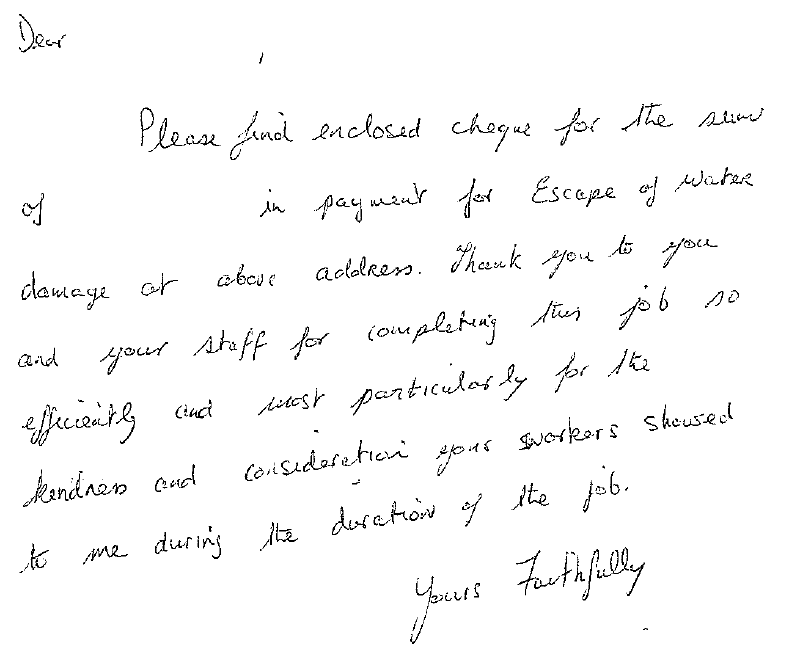 Dear
Please find enclosed cheque for the sum
of in payment for Escape of water
damage at above address. Thank you to you
and your staff for completing this job so
efficiently and most particularly for the
kindness and consideration your workers showed
to me during the duration of the job.
Yours Faithfully